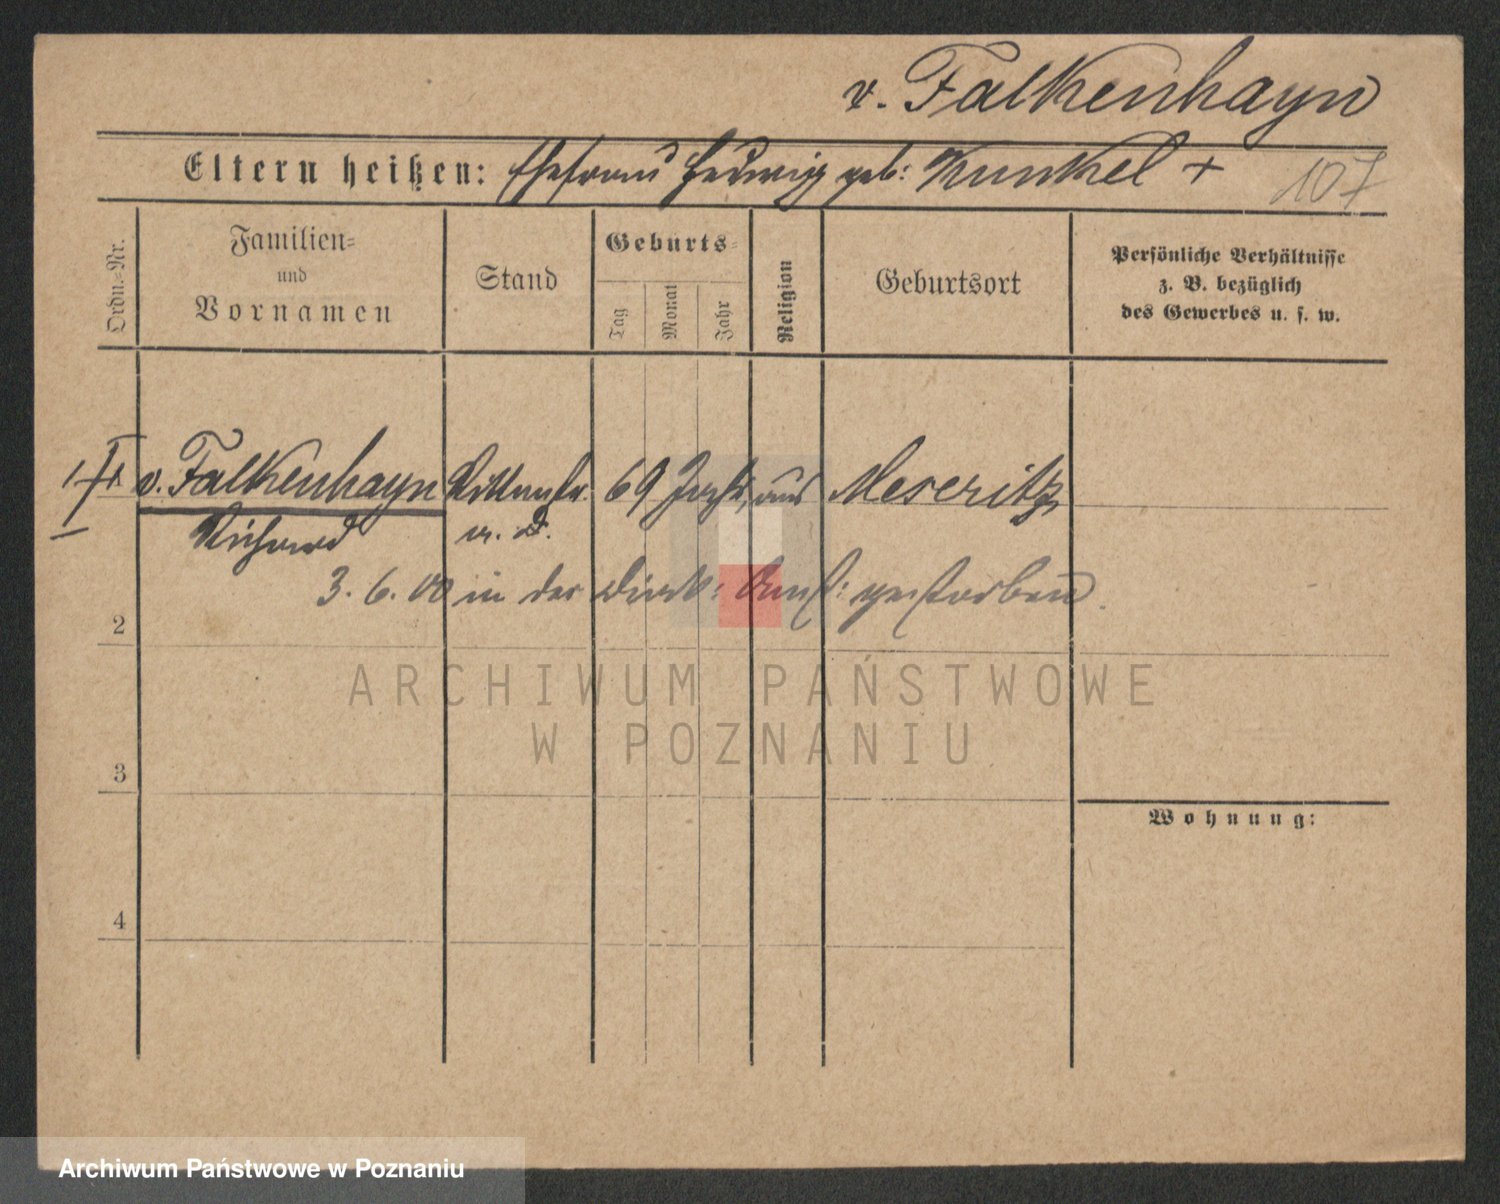 v. Falkenhayn
Eltern heißen: Ehefrau Hedwig geb: Kunkel +
107
Ordn.-Nr.
Familien-
und
Vornamen
Stand
Geburts-
Tag
Monat
Jahr
Religion
Geburtsort
Persönliche Verhältnisse
z. B. bezüglich
des Gewerbes u. s. w.
1 v. Falkenhayn 69 Jahr, aus Meseritz
Richard a. D.
3. 6. 00 in der gestorben.
2
ARCHIWUM PAŃSTWOWE
W POZNANIU
3
Wohnung:
4
Archiwum Państwowe w Poznaniu